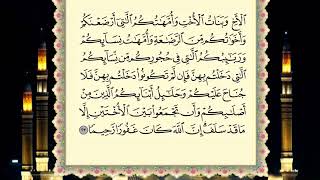 ٱلۡأَخِ وَبَنَاتُ ٱلۡأُخۡتِ وَأُمَّهَٰتُكُمُ ٱلَّٰتِيٓ أَرۡضَعۡنَكُمۡ
وَأَخَوَٰتُكُم مِّنَ ٱلرَّضَٰعَةِ وَأُمَّهَٰتُ نِسَآئِكُمۡ
وَرَبَٰٓئِبُكُمُ ٱلَّٰتِي فِي حُجُورِكُم مِّن نِّسَآئِكُمُ
ٱلَّٰتِي دَخَلۡتُم بِهِنَّ فَإِن لَّمۡ تَكُونُواْ دَخَلۡتُم بِهِنَّ فَلَا
جُنَاحَ عَلَيۡكُمۡ وَحَلَٰٓئِلُ أَبۡنَآئِكُمُ ٱلَّذِينَ مِنۡ
أَصۡلَٰبِكُمۡ وَأَن تَجۡمَعُواْ بَيۡنَ ٱلۡأُخۡتَيۡنِ إِلَّا
مَا قَدۡ سَلَفَۗ إِنَّ ٱللَّهَ كَانَ غَفُورٗا رَّحِيمٗا ٢٣